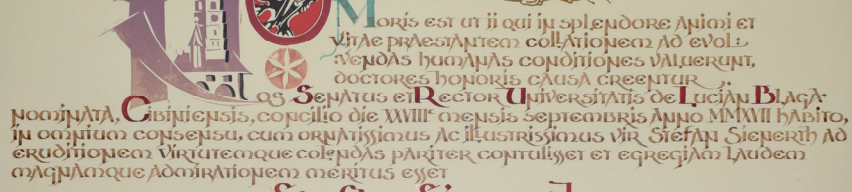 Moris est ut ii qui in splendore animi et
vitae praestantem collationem ad evol:
:vendas humanas conditiones valuerunt,
doctores honoris causa creentur,
Nos Senatus et Rector Universitatis de Lucian Blaga
nominata, Cibiniensis, concilio die XXVIIIe mensis septembris anno MMXVII habito,
in omnium consensu, cum ornatissimus ac illustrissimus vir Stefan Sienerth ad
eruditionem virtutemque colendas pariter contulisset et egregiam laudem
magnamque admirationem meritus esset